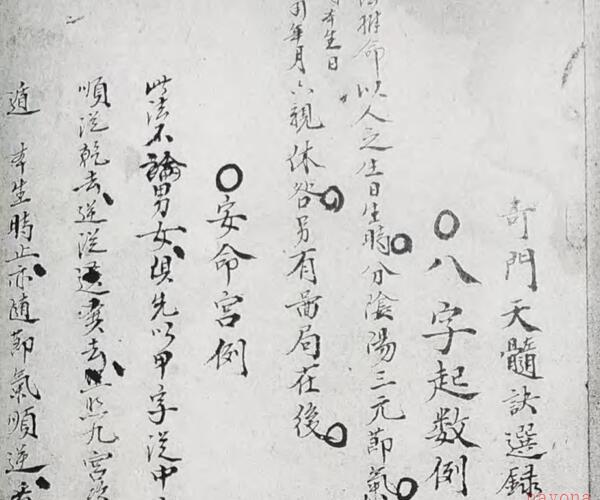 奇門天髓訣選録
〇八字起数例
推命以人之生日生時分陰陽三元節氣
年月六親休咎另有圖局在後
本生日
〇安命宮例
此法不論男女俱先以甲字從中
順從乾去逆從巽去照九宮
遁 本生時止亦隨節氣順逆